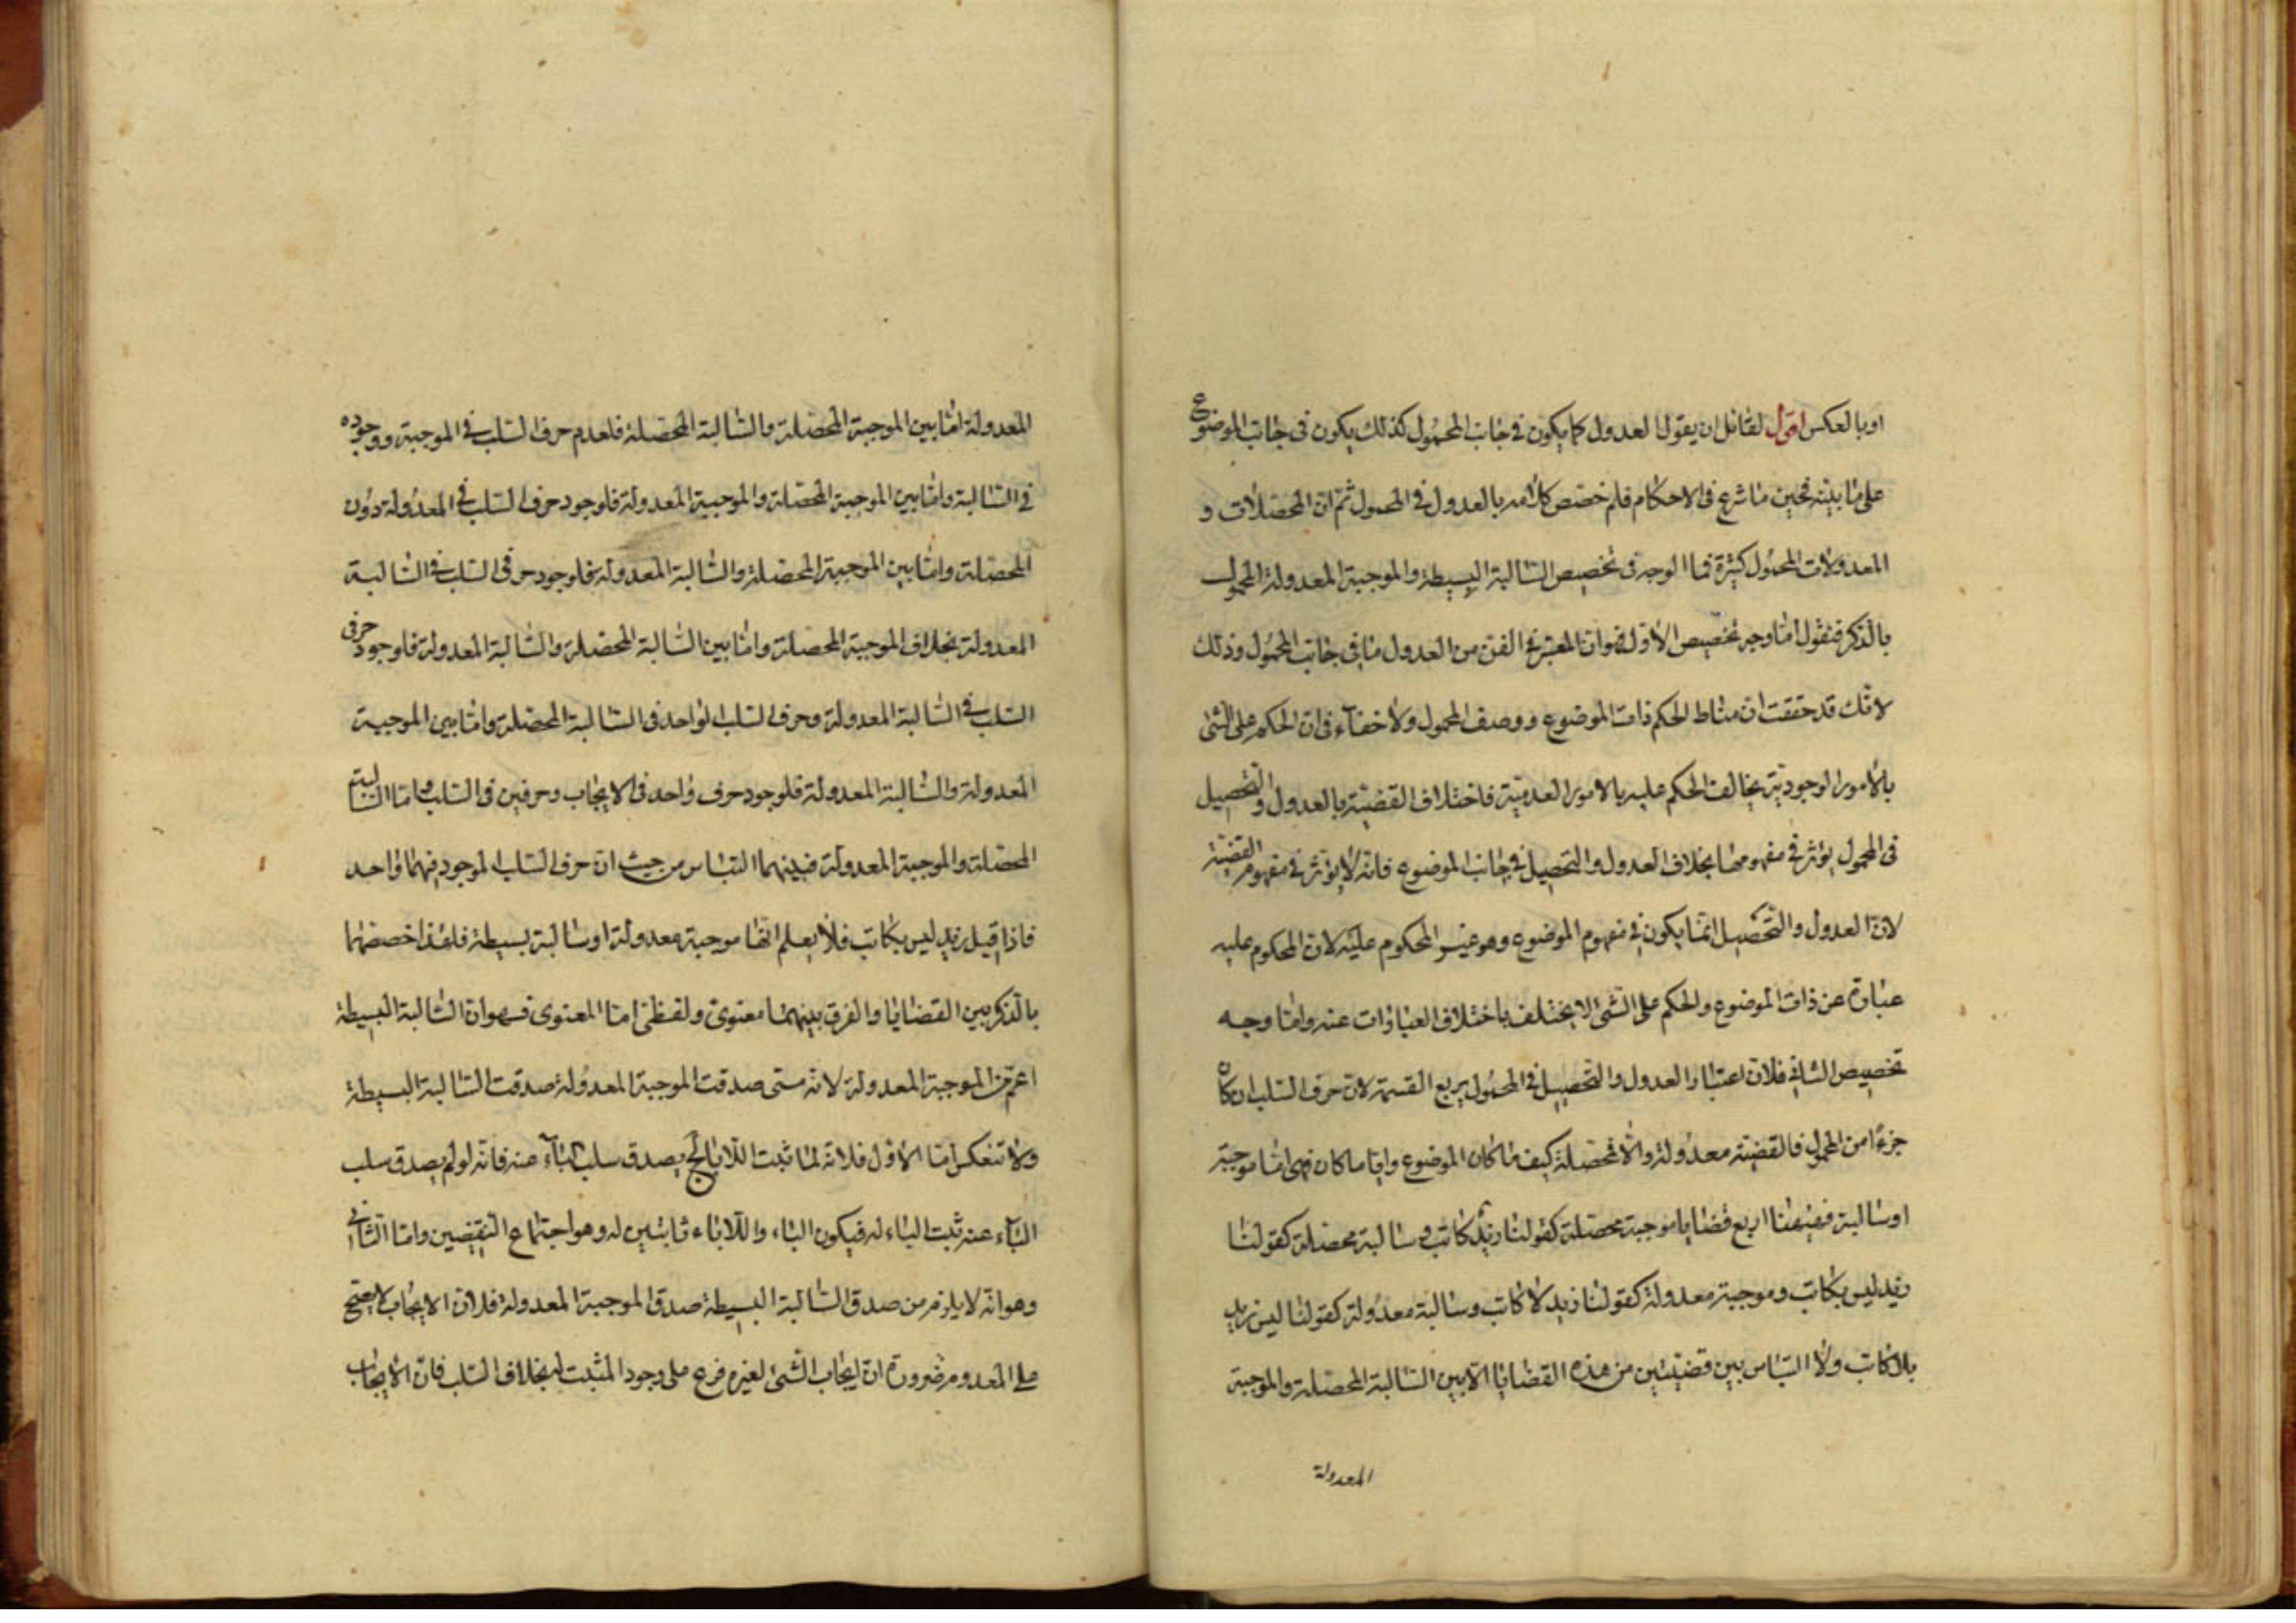 او بالعكس اقول لقائل ان يقول العدول كما يكون في جانب المحمول كذلك يكون في جانب الموضوع
على ما بينه فحين ما شرع في الاحكام فلم خصص كلامه بالعدول في المحمول ثم ان المحصلات و
المعدولات المحمول كثيرة فما الوجه في تخصيص السالبة البسيطة والموجبة المعدولة المحمول
بالذكر فنقول اما وجه تخصيص الاول فهو ان المعتبر في الفن من العدول ما في جانب المحمول وذلك
لانك قد حققت ان مناط الحكم ذات الموضوع ووصف المحمول ولا خفاء في ان الحكم على الشئ
بالامور الوجودية يخالف الحكم عليه بالامور العدمية فاختلاف القضية بالعدول والتحصيل
في المحمول يؤثر في مفهومها بخلاف العدول والتحصيل في جانب الموضوع فانه لا يؤثر في مفهوم القضية
لان العدول والتحصيل انما يكون في مفهوم الموضوع وهو غير المحكوم عليه لان المحكوم عليه
عبارة عن ذات الموضوع والحكم على الشئ لا يختلف باختلاف العبارات عنه واما وجه
تخصيص الثاني فلان اعتبار العدول والتحصيل في المحمول يربع القسمة لان حرف السلب ان كان
جزءا من المحمول فالقضية معدولة والا فمحصلة كيف ما كان الموضوع وايا ما كان فهي اما موجبة
او سالبة فهيهنا اربع قضايا موجبة محصلة كقولنا زيد كاتب وسالبة محصلة كقولنا
زيد ليس بكاتب وموجبة معدولة كقولنا زيد لا كاتب وسالبة معدولة كقولنا ليس زيد
بلا كاتب ولا التباس بين قضيتين من هذه القضايا الا بين السالبة المحصلة والموجبة
المعدولة
المعدولة اما بين الموجبة المحصلة والسالبة المحصلة فلعدم حرف السلب في الموجبة ووجوده
في السالبة واما بين الموجبة المحصلة والموجبة المعدولة فلوجود حرف السلب في المعدولة دون
المحصلة واما بين الموجبة المحصلة والسالبة المعدولة فلوجود حرفى السلب في السالبة
المعدولة بخلاف الموجبة المحصلة واما بين السالبة المحصلة والسالبة المعدولة فلوجود حرفى
السلب في السالبة المعدولة وحرف السلب الواحد في السالبة المحصلة واما بين الموجبة
المعدولة والسالبة المعدولة فلوجود حرف واحد في الايجاب وحرفين في السلب واما السالبة
المحصلة والموجبة المعدولة فبينهما التباس من حيث ان حرف السلب الموجود فيهما واحد
فاذا قيل زيد ليس بكاتب فلا يعلم انها موجبة معدولة او سالبة بسيطة فلهذا خصصهما
بالذكر بين القضايا والفرق بينهما معنوى ولفظى اما المعنوى فهو ان السالبة البسيطة
اعم من الموجبة المعدولة لانه متى صدقت الموجبة المعدولة صدقت السالبة البسيطة
ولا تنعكس اما الاول فلانه لما ثبت اللاباء لج يصدق سلب الباء عنه فانه لو لم يصدق سلب
الباء عنه ثبت الباء له فيكون الباء واللاباء ثابتين له وهو اجتماع النقيضين واما الثاني
وهو انه لا يلزم من صدق السالبة البسيطة صدق الموجبة المعدولة فلان الايجاب لا يصح
على المعدوم ضرورة ان ايجاب الشئ لغيره فرع على وجود المثبت له بخلاف السلب فان الايجاب